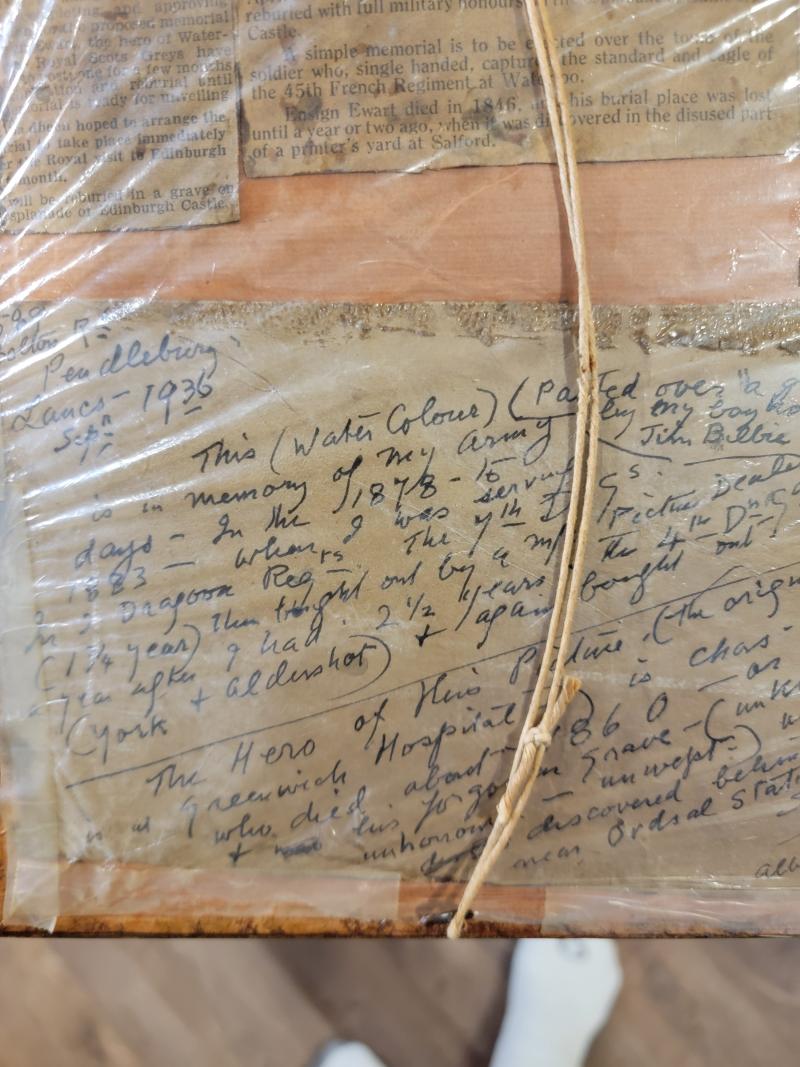 leting, and approving
the proposed memorial
Ewart, the hero of Water-
Royal Scots Greys have
postpone for a few months
and reburial until
memorial is ready for unveiling
hoped to arrange the
to take place immediately
the Royal visit to Edinburgh
month.
will be reburied in a grave on
esplanade of Edinburgh Castle.
reburied with full military honours
Castle.
A simple memorial is to be erected over the tomb of the
soldier who, single handed, captured the standard and eagle of
the 45th French Regiment at Waterloo.
Ensign Ewart died in 1846, and his burial place was lost
until a year or two ago, when it was discovered in the disused part
of a printer's yard at Salford.
Pendlebury
Lancs - 1936
Sepn
This (Water Colour) (Painted over "a
by my boy
Jim Bilbie
is in memory of my army
days - In the 1878 - to
1883 - when I was serving
In Dragoon Regts. The 7th D Gs.
(1¾ year) then bought out by a Picture Dealer
year after I had 2½ years the 4th Dn Gs
(York + Aldershot) + again bought out
The Hero of this Picture (the origin
is at Greenwich Hospital) is chas-
who died about 1860 - or
+ his forgotten Grave - (unk
unhonoured - unwept)
discovered behind
near Ordsal Stat